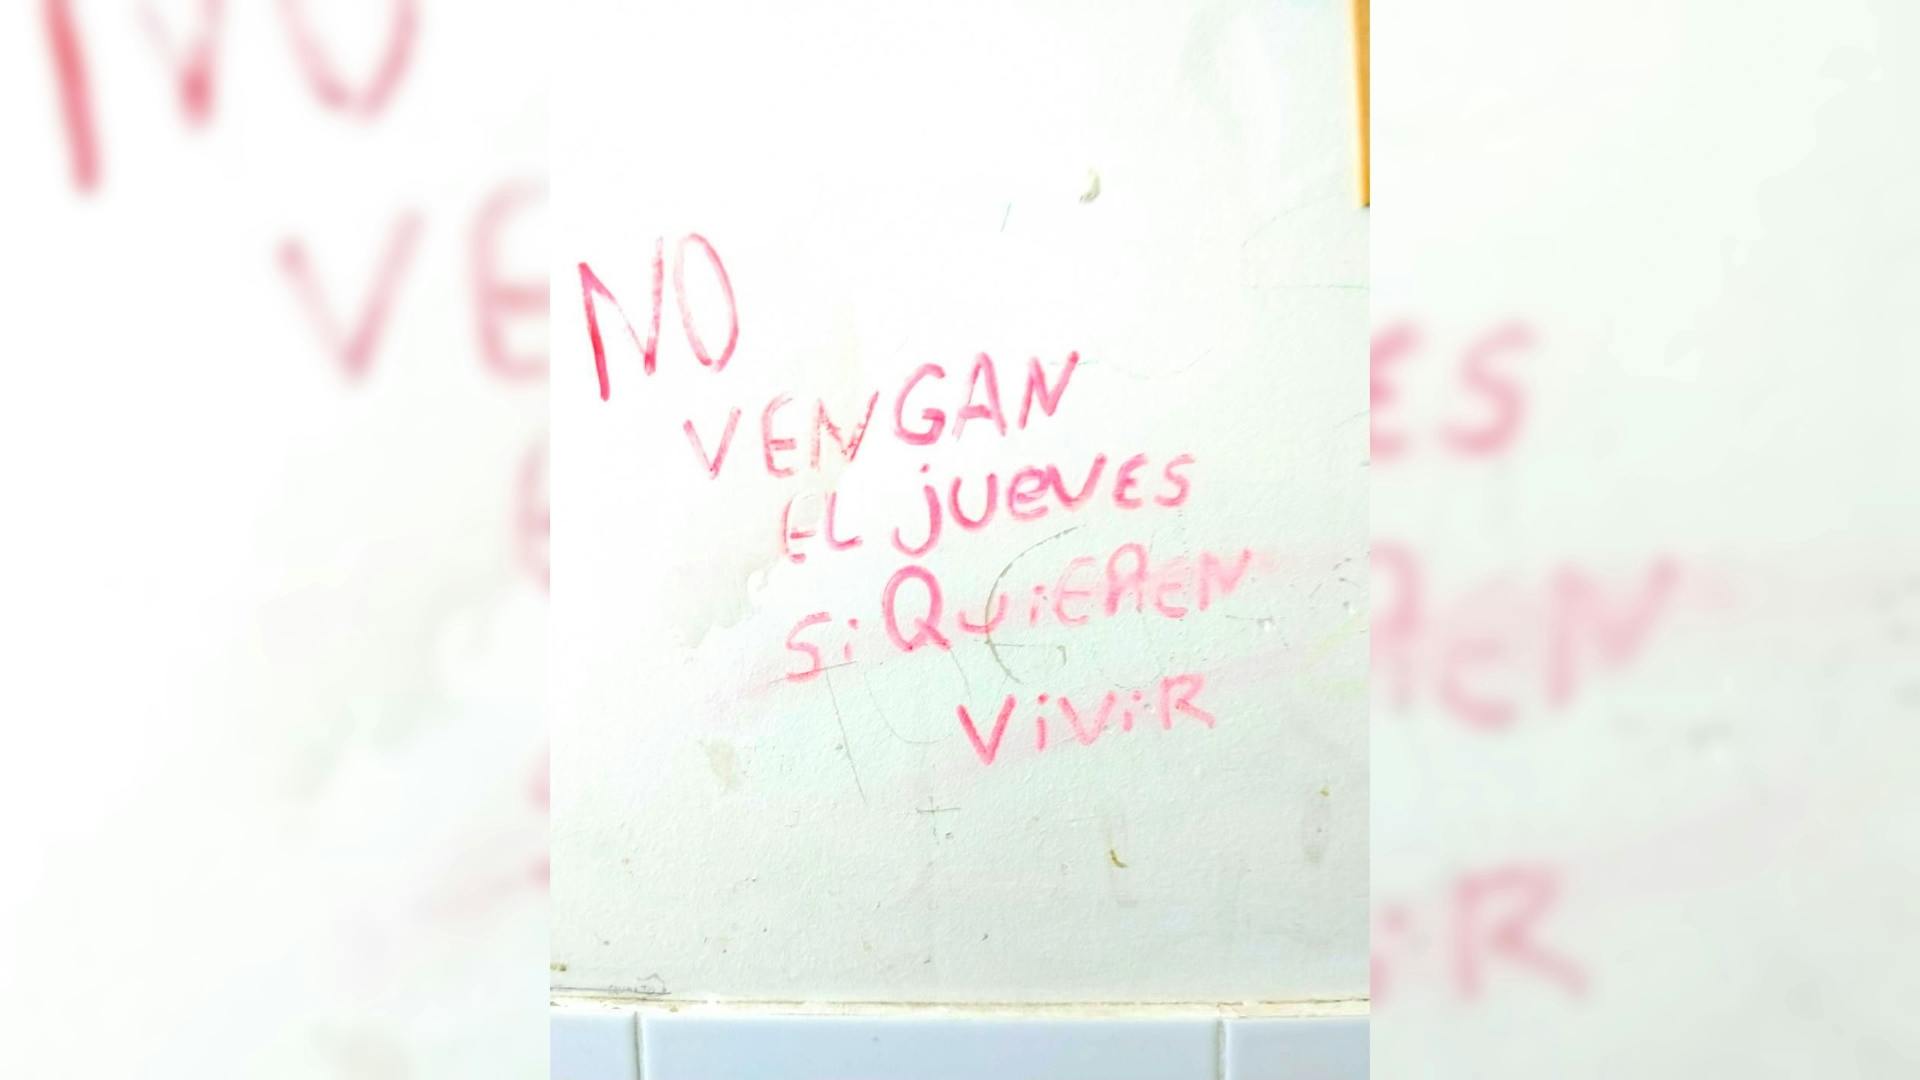 NO
VENGAN
EL jUEVES
Si QUiEREN
ViViR